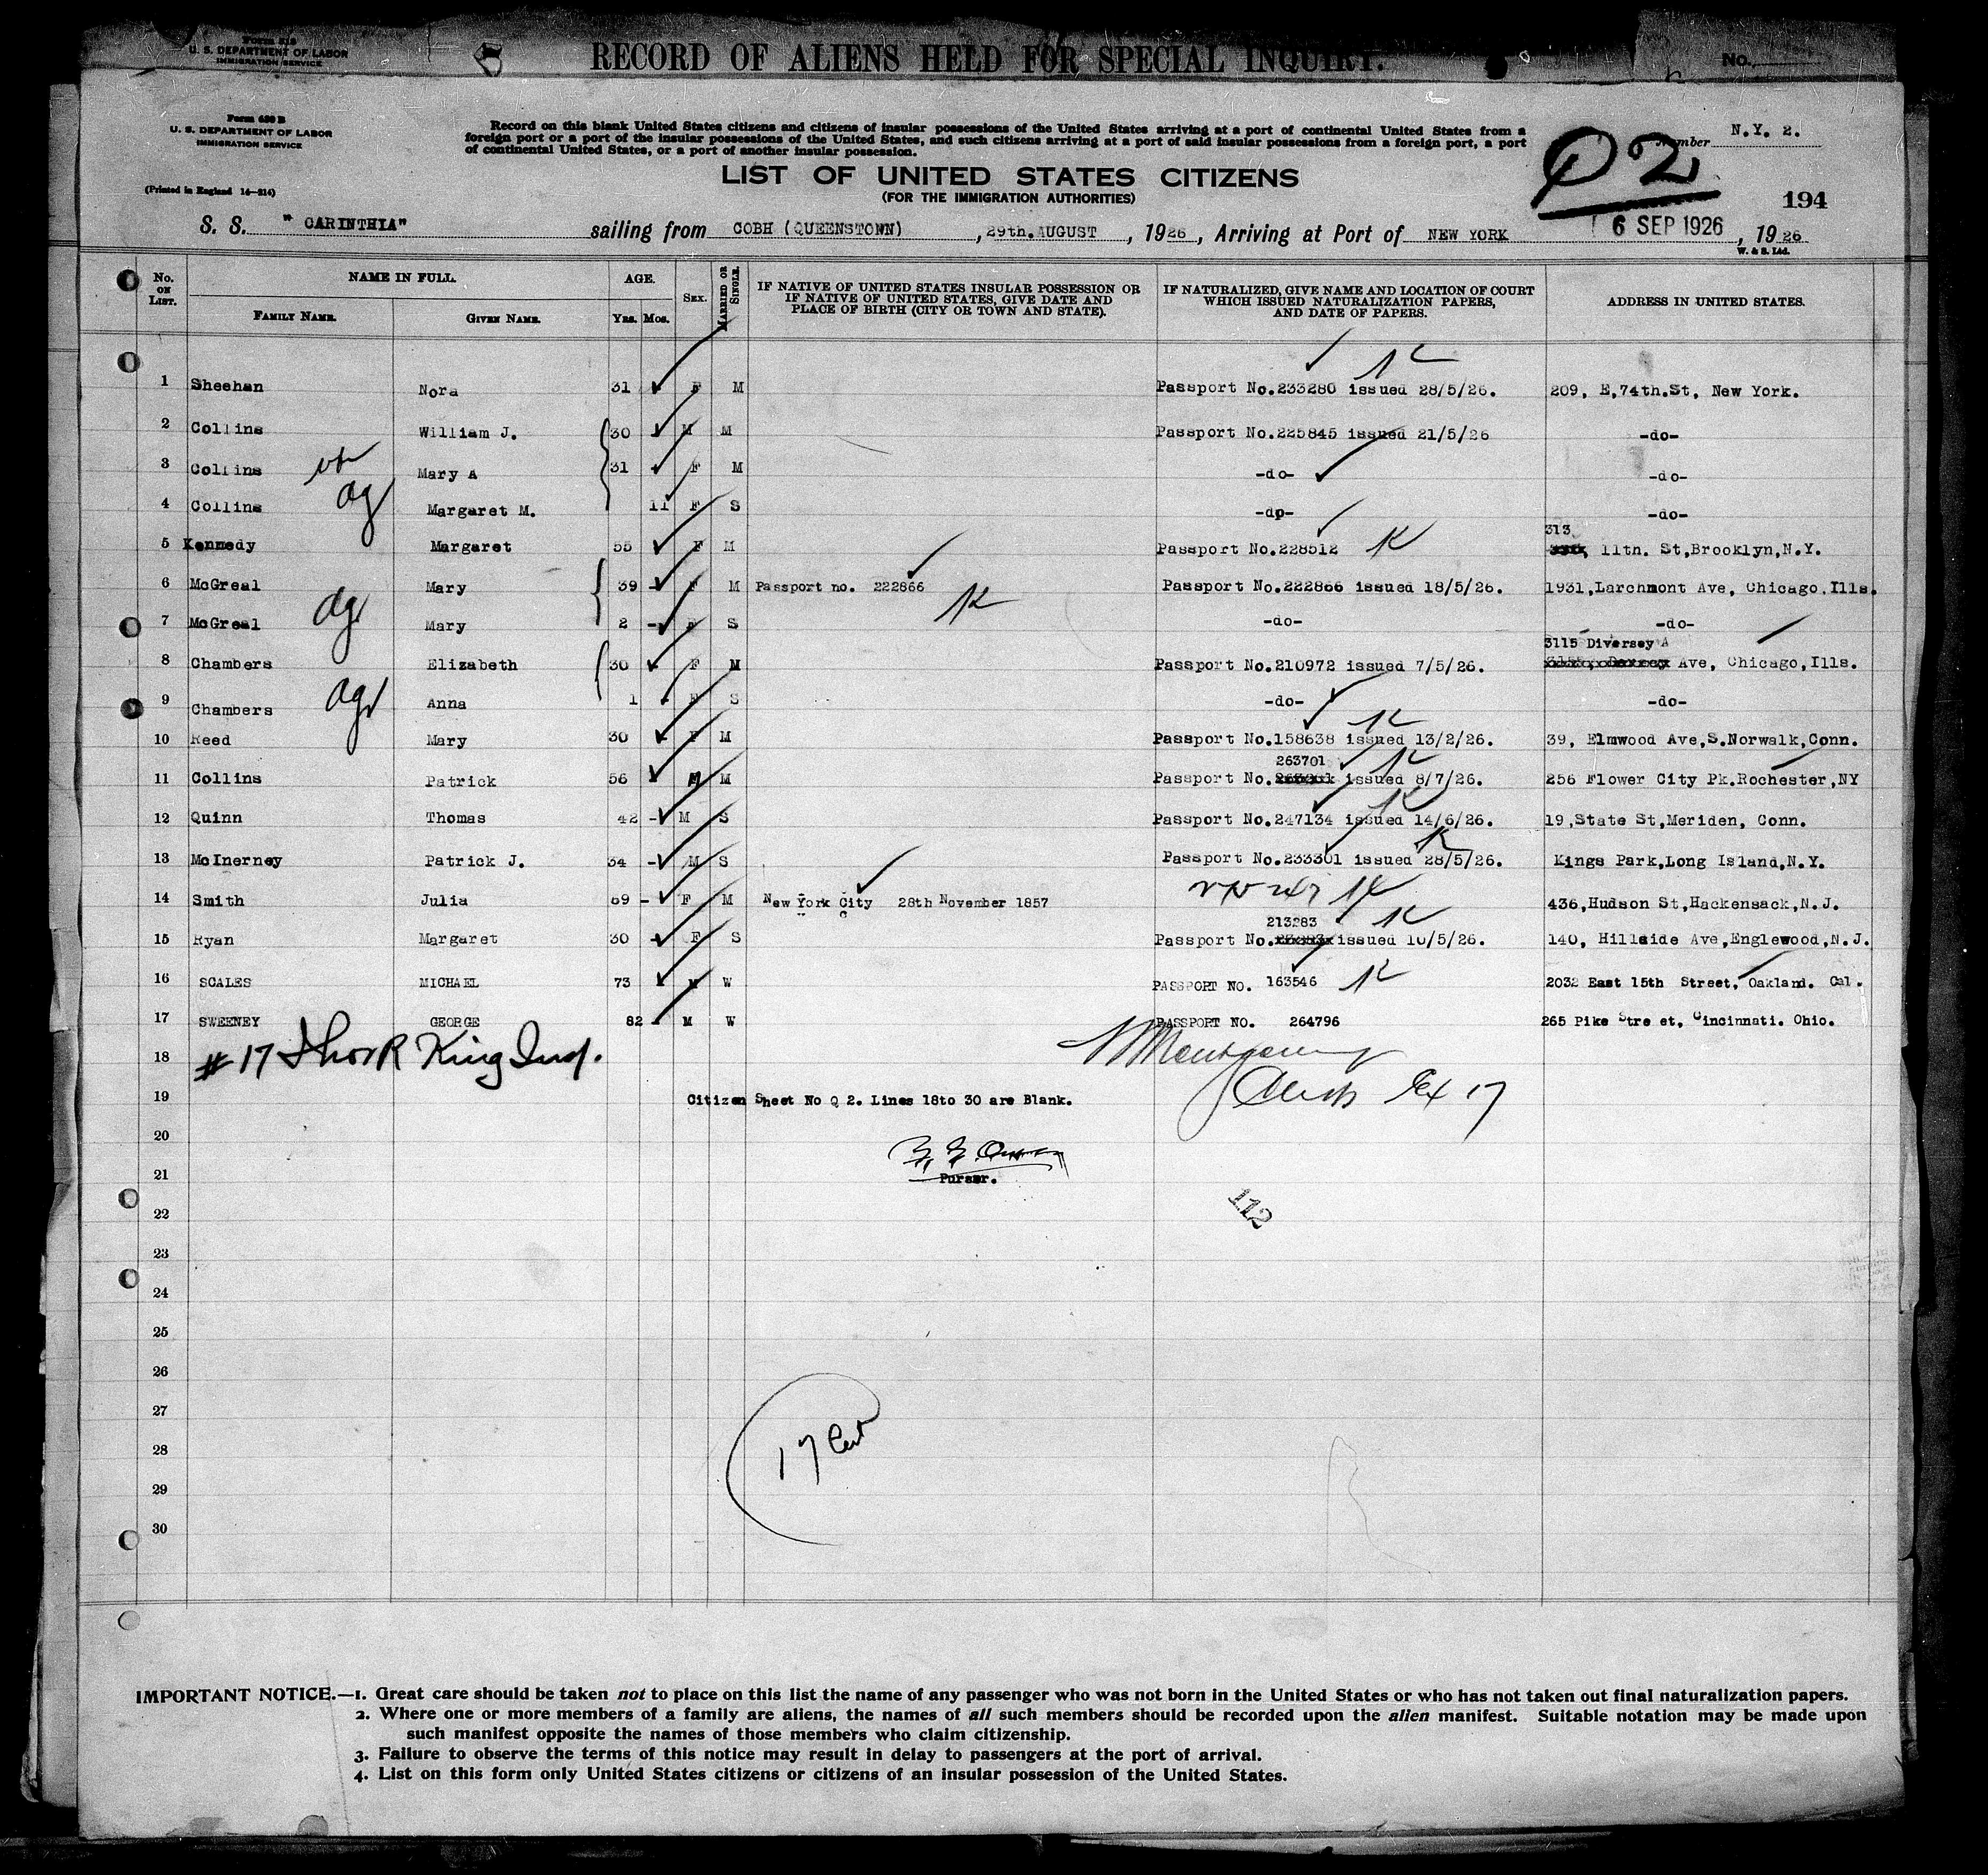 Form 618
U. S. DEPARTMENT OF LABOR
IMMIGRATION SERVICE
RECORD OF ALIENS HELD FOR SPECIAL INQUIRY.
No.
Form 630 B
U. S. DEPARTMENT OF LABOR
IMMIGRATION SERVICE
Record on this blank United States citizens and citizens of insular possessions of the United States arriving at a port of continental United States from a
foreign port or a port of the insular possessions of the United States, and such citizens arriving at a port of said insular possessions from a foreign port, a port
of continental United States, or a port of another insular possession.
Number N.Y. 2.
Q2
LIST OF UNITED STATES CITIZENS
(FOR THE IMMIGRATION AUTHORITIES)
(Printed in England 14-214)
194
S. S. "CARINTHIA" sailing from COBH (QUEENSTOWN), 29th. AUGUST, 1926, Arriving at Port of NEW YORK 6 SEP 1926, 1926
W. & S. Ltd.
No. ON LIST. NAME IN FULL. FAMILY NAME. GIVEN NAME. AGE. Yrs. Mos. SEX. MARRIED OR SINGLE. IF NATIVE OF UNITED STATES INSULAR POSSESSION OR IF NATIVE OF UNITED STATES, GIVE DATE AND PLACE OF BIRTH (CITY OR TOWN AND STATE). IF NATURALIZED, GIVE NAME AND LOCATION OF COURT WHICH ISSUED NATURALIZATION PAPERS, AND DATE OF PAPERS. ADDRESS IN UNITED STATES.
1 Sheehan Nora 31 F M Passport No.233280 issued 28/5/26. 209, E,74th.St, New York.
2 Collins William J. 30 M M Passport No.225845 issued 21/5/26 -do-
3 Collins Mary A 31 F M -do- -do-
4 Collins Margaret M. 11 F S -do- -do-
313
5 Kennedy Margaret 55 F M Passport No.228512 11th. St,Brooklyn,N.Y.
6 McGreal Mary 39 - F M Passport no. 222866 Passport No.222866 issued 18/5/26. 1931,Larchmont Ave, Chicago.Ills.
7 McGreal Mary 2 - F S -do- -do-
3115 Diversey A
8 Chambers Elizabeth 30 F M Passport No.210972 issued 7/5/26. Ave, Chicago,Ills.
9 Chambers Anna 1 F S -do- -do-
10 Reed Mary 30 F M Passport No.158638 issued 13/2/26. 39, Elmwood Ave,S.Norwalk,Conn.
263701
11 Collins Patrick 56 M M Passport No. issued 8/7/26. 256 Flower City Pk.Rochester,NY
12 Quinn Thomas 42 - M S Passport No.247134 issued 14/6/26. 19,State St,Meriden, Conn.
13 McInerney Patrick J. 34 - M S Passport No.233301 issued 28/5/26. Kings Park,Long Island,N.Y.
14 Smith Julia 69 - F M New York City 28th November 1857 436,Hudson St,Hackensack,N.J.
213283
15 Ryan Margaret 30 - F S Passport No. issued 10/5/26. 140, Hillside Ave,Englewood,N.J.
16 SCALES MICHAEL 73 M W PASSPORT NO. 163546 2032 East 15th Street, Oakland. Cal.
17 SWEENEY GEORGE 82 M W PASSPORT NO. 264796 265 Pike Street, Cincinnati. Ohio.
18 #17 King Ind.
19 Citizen Sheet No Q 2. Lines 18to 30 are Blank.
20
21 Purser.
22 112
23
24
25
26
27
28 17
29
30
IMPORTANT NOTICE.—1. Great care should be taken not to place on this list the name of any passenger who was not born in the United States or who has not taken out final naturalization papers.
2. Where one or more members of a family are aliens, the names of all such members should be recorded upon the alien manifest. Suitable notation may be made upon
such manifest opposite the names of those members who claim citizenship.
3. Failure to observe the terms of this notice may result in delay to passengers at the port of arrival.
4. List on this form only United States citizens or citizens of an insular possession of the United States.